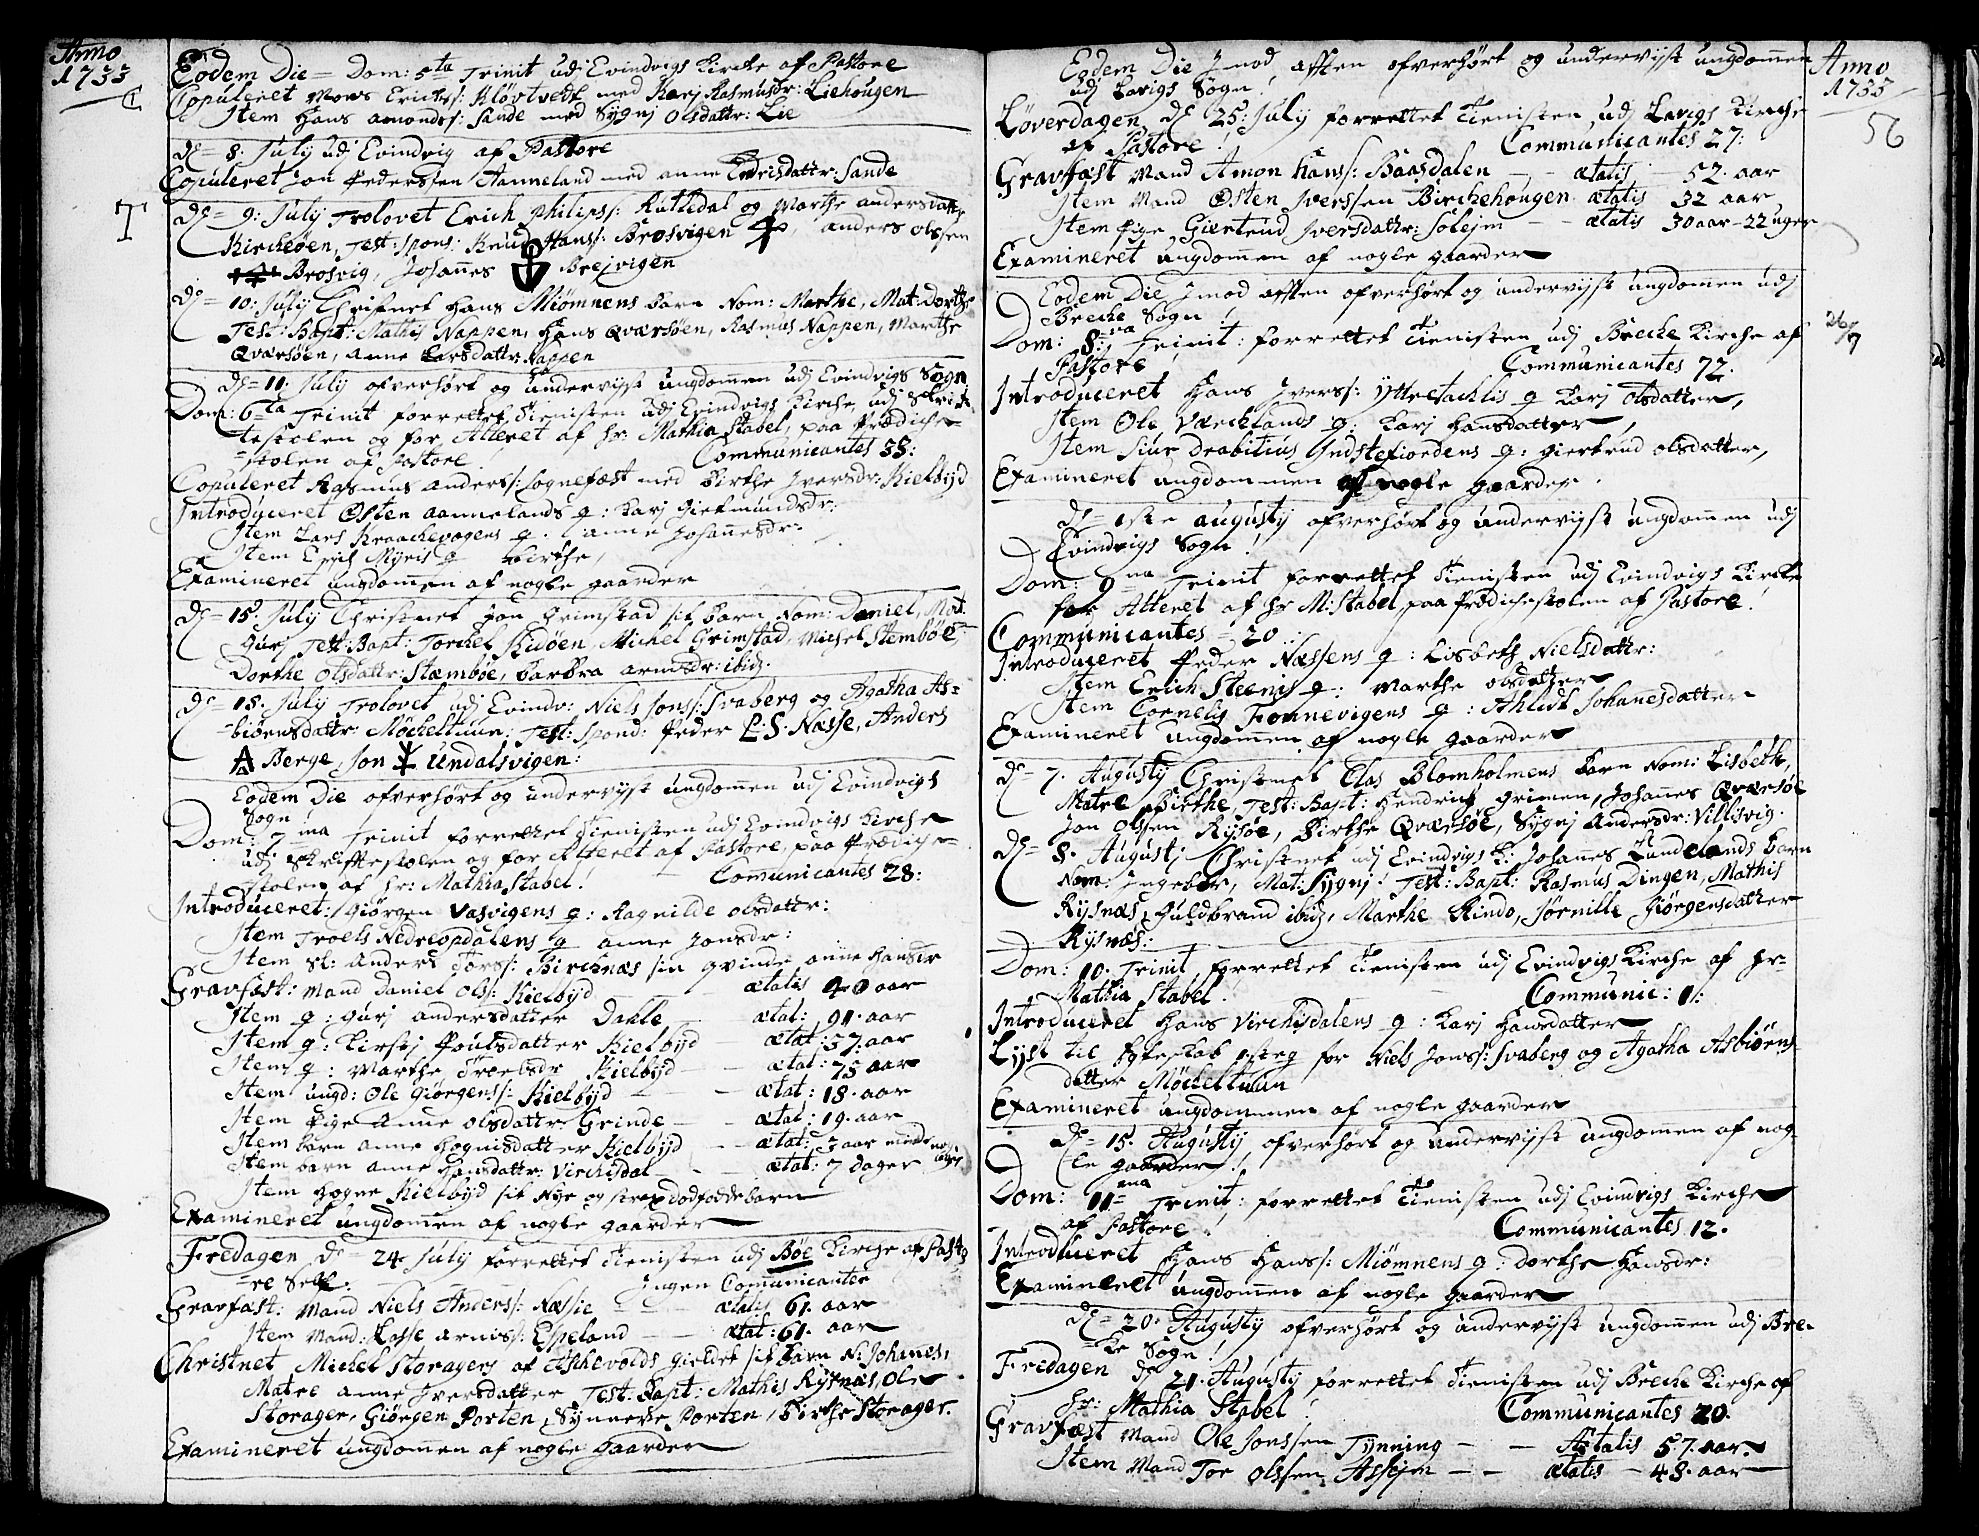 Anno
1733
Eodem Die = Dom: 5ta Trinit udj Evindvigs Kircke af Pastore
Copuleret Mons Erichs: Kløvtvedt med Karj Rasmusdr: Liehougen
Item Hans Amonds: Sande med Sygnj Olsdattr: Lie
d = 8. July udj Evindvig af Pastore
Copuleret Jon Pederssen Aanneland med Anne Endrisdattr: Sande
d = 9: July Trolovet Erich Philips: Ruttedal og Marthe Andersdattr
Kircheøen, Test: Spons: Knud Hans: Brosvigen, Anders Olssen
Brosvig, Johannes Brejvigen
d = 10: July Christnet Hans Miømnens barn Nom: Marthe, Mat: Dorthe
Test: Bapt: Mathis Nappen, Hans Qværsøen, Rasmus Nappen, Marthe
Qværsøen, Anne Larsdattr: Nappen
d = 11. July ofverhørt og undervijst ungdommen udj Evindvigs Sogn
Dom: 6ta Trinit forrettet Tienisten udj Evindvigs Kirche, udj Skrif-
testolen og for Alteret af Hr: Mathia Stabel, paa Prædiche-
stolen af Pastore. Communicantes 38:
Copuleret Rasmus Anders: Sognefæst med Birthe Iversdr: Kielbyd
Introduceret Østen Aannelands q: Karj Giermundsdr:
Item Lars Kraachevogens q: Anne Johannesdr:
Item Erich Myris q Birthe,
Examineret ungdommen af nogle gaarder
d = 15. July Christnet Jon Grimstad sit barn Nom: Daniel, Mat:
Gurj Test: Bapt: Torchel Kidøen, Michel Grimstad, Michel Stembøe
Dorthe Olsdattr: Stæmbøe, Barbra Arnisdr: ibid.
d = 18. July Trolovet udj Evindv: Niels Jons: Svaberg og Agatha As-
biørnsdattr Møcheltuun; Test: Spond: Peder L.S. Næsse, Anders
Berge, Jon Undalsvigen:
Eodem Die ofverhørt og undervijst ungdommen udj Evindvigs
Sogn
Dom: 7ma Trinit forrettet Tienisten udj Evindvigs Kirche
udj Skriftestolen og for Alteret af Pastore, paa Prædiche-
stolen af Hr: Mathia Stabel! Communicantes 28:
Introduceret: Giørgen Vasvigens q: Ragnilde Olsdattr:
Item Troels Nedreopdalens q Anne Jonsdr:
Item Sl: Anders Tors: Birchnæs sin qvinde Anne Hansdr
Gravfæst: Mand Daniel Ols: Kielbyd ætatis 40 aar
Item q: Gurj Andersdatter Dahle ætat: 91. aar
Item q: Kirstj Poulsdatter Kielbyd ætat: 37. aar
Item q: Marthe Troelsdr Kielbyd ætat: 75 aar
Item ungd: Ole Giørgens: Kielbyd ætat: 18. aar
Item Pige Anne Olsdattr: Grinde ætat: 19. aar
Item barn Anne Hognisdatter Kielbyd ætat: 3 aar
Item barn Anne Hansdattr: Virchisdal ætat: 7 dager
Item Hogne Kielbyd sit Nye og strax dødfødde barn
Examineret ungdommen af nogle gaarder
Fredagen d = 24. July forrettet Tienisten udj Bøe Kirche af Pasto
re Self. Ingen Comunicantes
Gravfæst: Mand Niels Anders: Næssie ætatis 61. aar
Item Mand: Lasse Arnis: Espeland ætat: 61. aar
Christnet Michel Storagers af Askevolds gieldet sit barn N: Johanes,
Matre Anne Iversdatter Test: Bapt: Mathis Rysnæs, Ole
Storager, Giørgen Porten, Synneve Porten, Birthe Storager.
Examineret ungdommen af nogle gaarder
Anno
1733
56
Eodem Die Imod aften ofverhørt og undervijst ungdommen
udj Lavigs Sogn!
Løverdagen d 25: July forrettet Tienisten udj Lavigs Kirche
af Pastore! Communicantes 27:
Gravfæst Mand Amon Hans: Baasdalen ætatis 52. aar
Item Mand Østen Iverssen Birchehougen ætatis 32 aar
Item Pige Giertrud Iversdattr: Solejm ætatis 30 aar - 22 uger
Examineret ungdommen af nogle gaarder
Eodem Die Imod aften ofverhørt og undervijst ungdommen udj
Breche Sogn!
26/7
Dom: 8va Trinit: forrettet Tienisten udj Breche Kirche af
Pastore! Communicantes 72.
Introduceret Hans Ivers: Yttretachlis q Karj Olsdatter,
Item Ole Værchlands q: Karj Hansdatter,
Item Siur Drabitius Yndstefiordens q: Giertrud Olsdatter,
Examineret ungdommen af nogle gaarder.
d = 1ste Augustj ofverhørt og undervijst ungdommen udj
Evindvigs Sogn!
Dom: 9na Trinit forrettet Tienisten udj Evindvigs Kirche
for Alteret af Hr M: Stabel, paa Prædichestolen af Pastore!
Communicantes = 20
Introduceret Peder Næssens q: Lisbeth Nielsdattr:
Item Erich Steenis q: Marthe Olsdatter
Item Cornelis Fonnevigens q: Ahlidt Johanesdatter
Examineret ungdommen af nogle gaarder
d = 7. Augustj Christnet Clas Blomholmens barn Nom: Lisbeth,
Matre Birthe, Test: Bapt: Hendrich Grimen, Johannes Qværsøe
Jon Olssen Rysøe, Birthe Qværsøe, Sygnj Andersdr: Villisvig.
d = 8. Augustj Christnet udj Evindvigs K: Johannes Lundelands barn
Nom: Ingebor, Mat: Sygnj! Test: Bapt: Rasmus Dingen, Mathis
Rysnæs, Guldbrand ibid, Marthe Rindo, Jørnille Giørgensdatter
Rysnæs:
Dom: 10. Trinit forrettet Tienisten udj Evindvigs Kirche af Hr
Mathia Stabel. Communic: 11:
Introduceret Hans Virchisdalens q: Karj Hansdatter
Lyst til Egteskab for Niels Jons: Svaberg og Agatha Asbiørns-
datter Møcheltuun
Examineret ungdommen af nogle gaarder
d = 15. Augustj ofverhørt og undervijst ungdommen af nog-
le gaarder!
Dom: 11ma Trinit: forrettet Tienisten udj Evindvigs Kirche
af Pastore! Communicantes 12.
Introduceret Hans Hans: Miømnens q: Dorthe Hansdr:
Examineret ungdommen af nogle gaarder
d = 20. Augustj ofverhørt og undervijst ungdommen udj Bre-
che Sogn!
Fredagen d 21. Augustj forrettet Tienisten udj Breche Kirche af
Hr: Mathia Stabel! Communicantes 20.
Gravfæst Mand Ole Jonssen Tynning Ætatis 57. aar
Item Mand Tor Olssen Assejm ætatis 48. aar